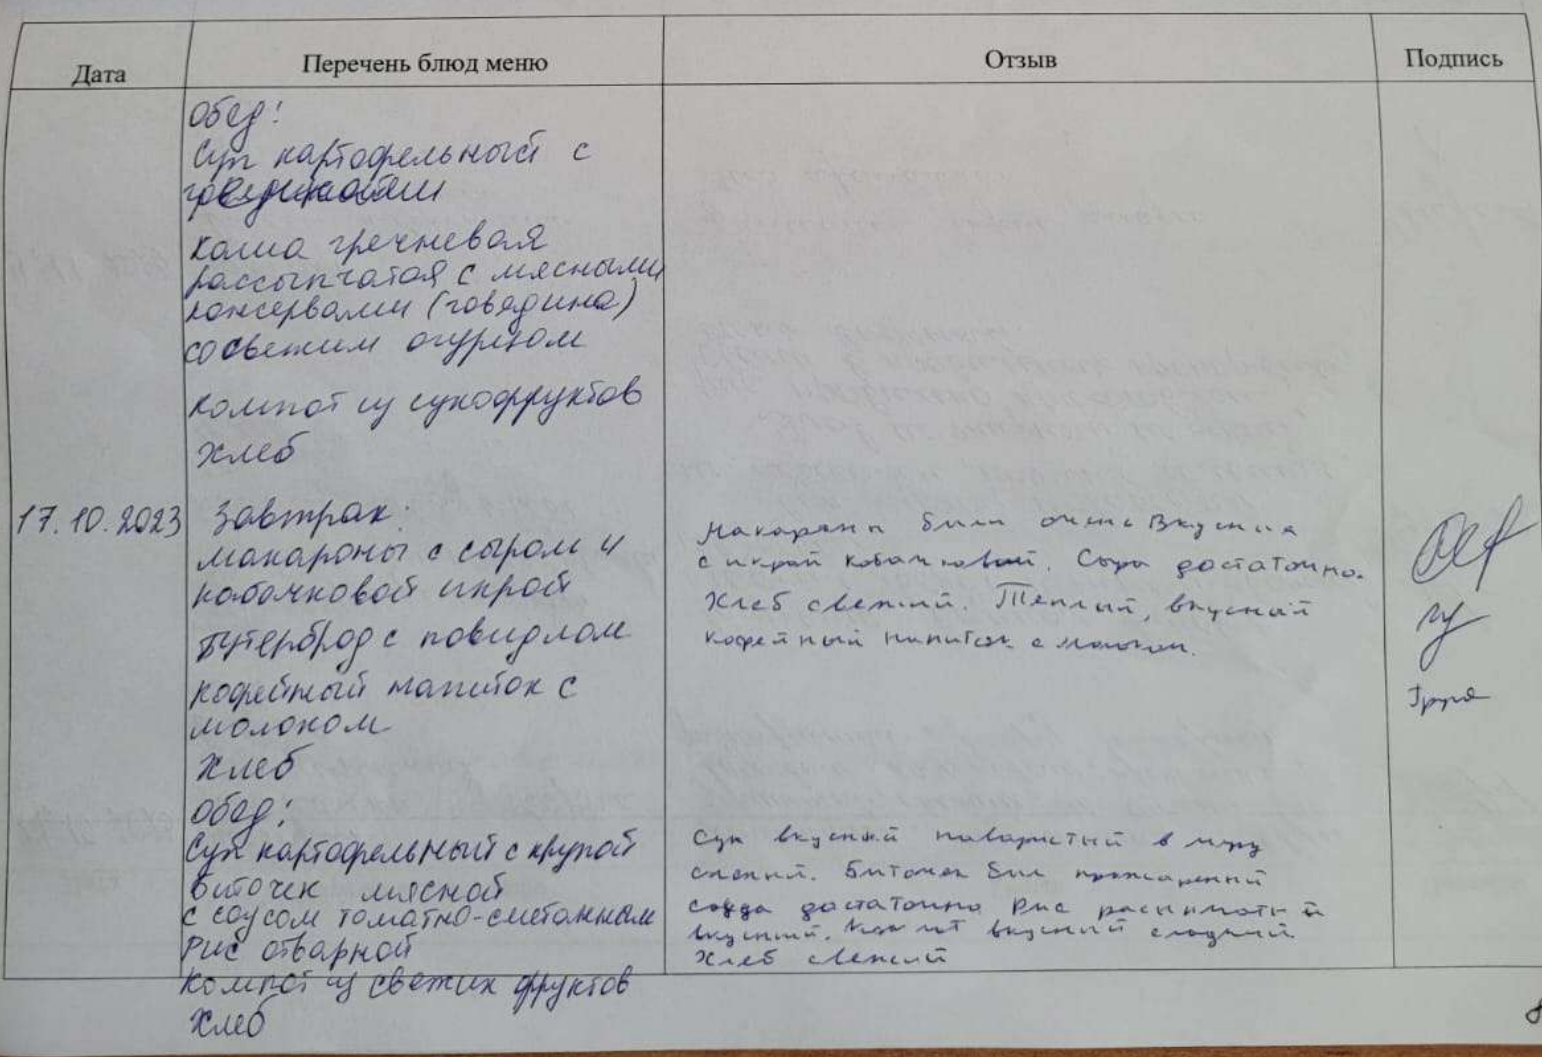 Дата Перечень блюд меню Отзыв Подпись
Обед:
Суп картофельный с
Каша гречневая
рассыпчатая с мясными
консервами (говядина)
со свежим огурцом
Компот из сухофруктов
Хлеб
17.10.2023 Завтрак:
макароны с сыром и
кабачковой икрой
Бутерброд с повидлом
кофейный напиток с
молоком
Хлеб
Макароны были очень вкусные
с икрой кабачковой. Сыра достаточно.
Хлеб свежий. Теплый, вкусный
кофейный напиток с молоком.
Обед:
Суп картофельный с крупой
Биточек мясной
с соусом томатно-сметанным
Рис отварной
Компот из свежих фруктов
Хлеб
Суп вкусный наваристый в меру
соленый. Биточек был прожаренный
достаточно Рис рассыпчатый
вкусный. Компот вкусный сладкий
Хлеб свежий
8